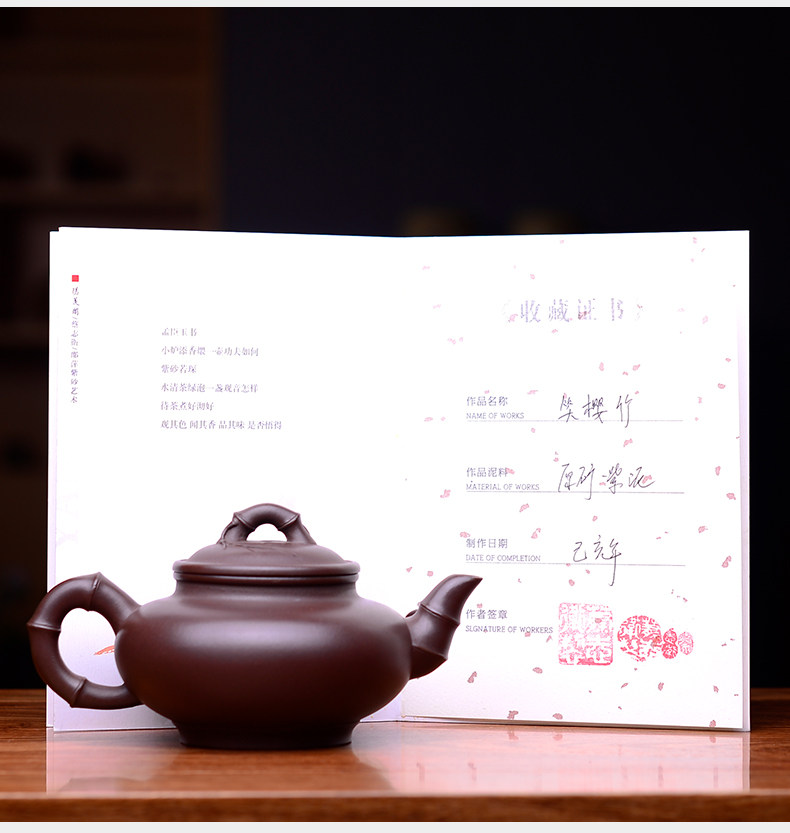 孟臣玉书
小炉添香煨一壶功夫如何
紫砂若琛
水清茶绿泡一盏观音怎样
待茶煮好沏好
观其色 闻其香 品其味 是否悟得
收藏证书
作品名称
NAME OF WORKS
笑樱竹
作品泥料
MATERIAL OF WORKS
原矿紫泥
制作日期
DATE OF COMPLETION
己亥年
作者签章
SLGNATURE OF WORKERS